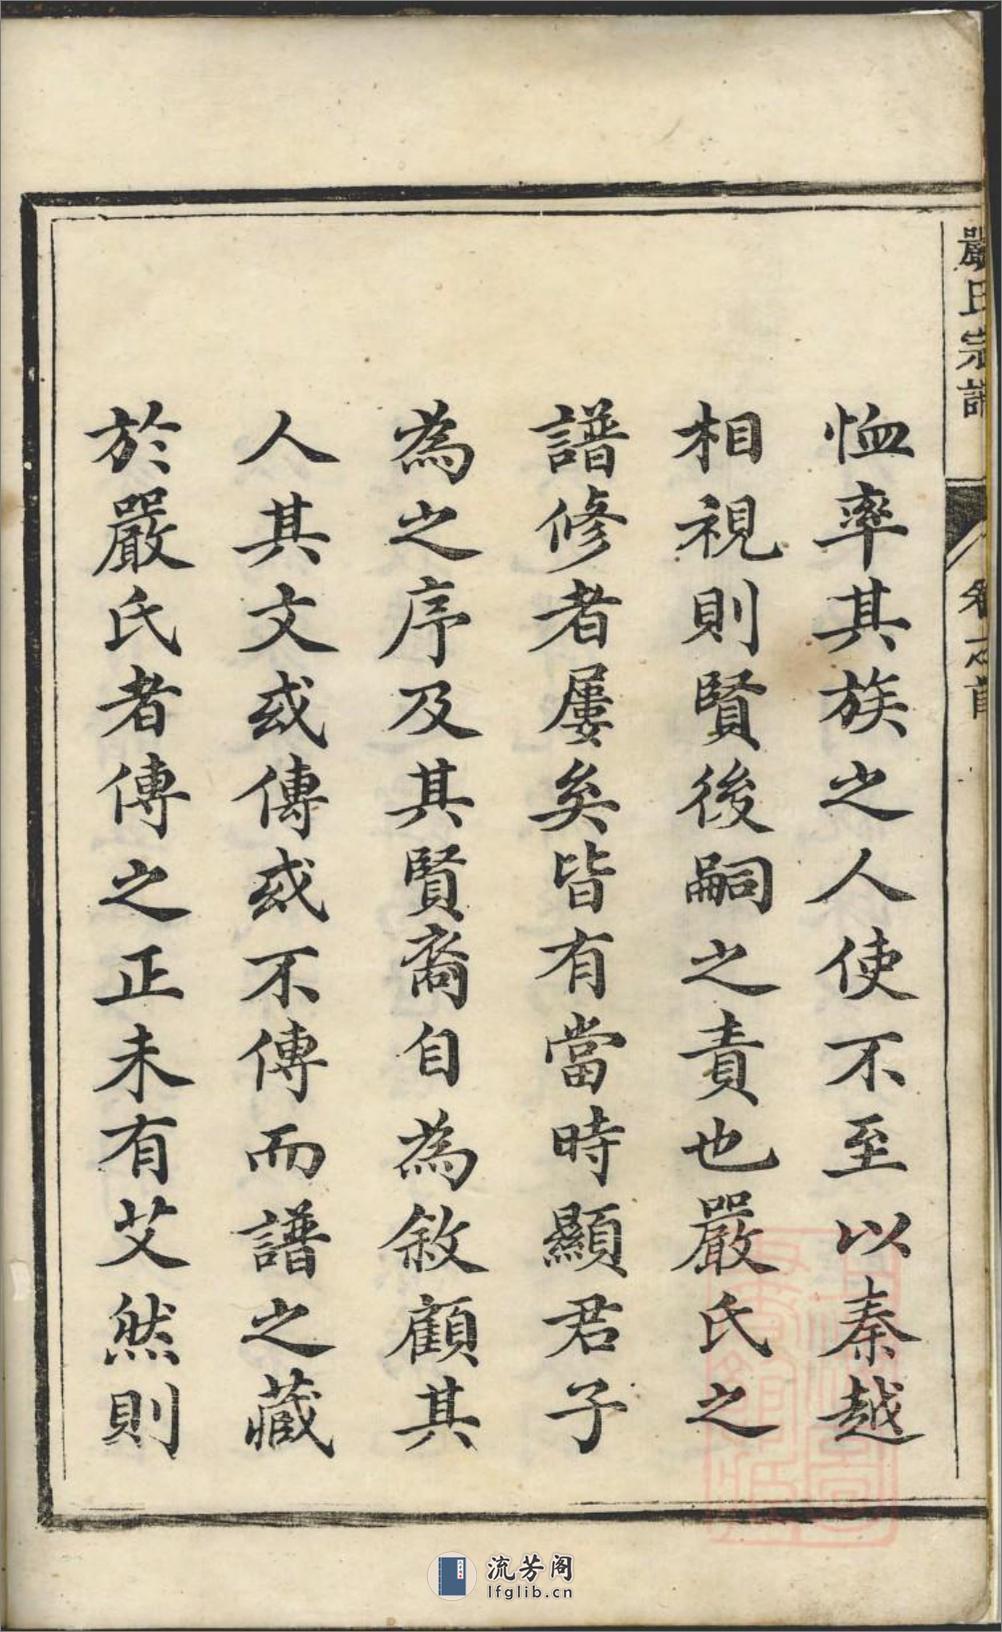 嚴氏宗譜
卷之首
恤率其族之人使不至以秦越
相視則賢後嗣之責也嚴氏之
譜修者屢矣皆有當時顯君子
為之序及其賢裔自為敘顧其
人其文或傳或不傳而譜之藏
於嚴氏者傳之正未有艾然則
流芳阁
lfglib.cn